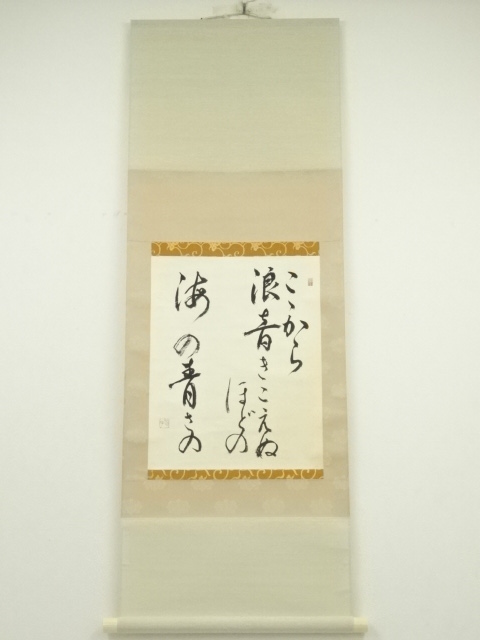 こゝから
浪音きこえぬ
ほどの
海の青さの